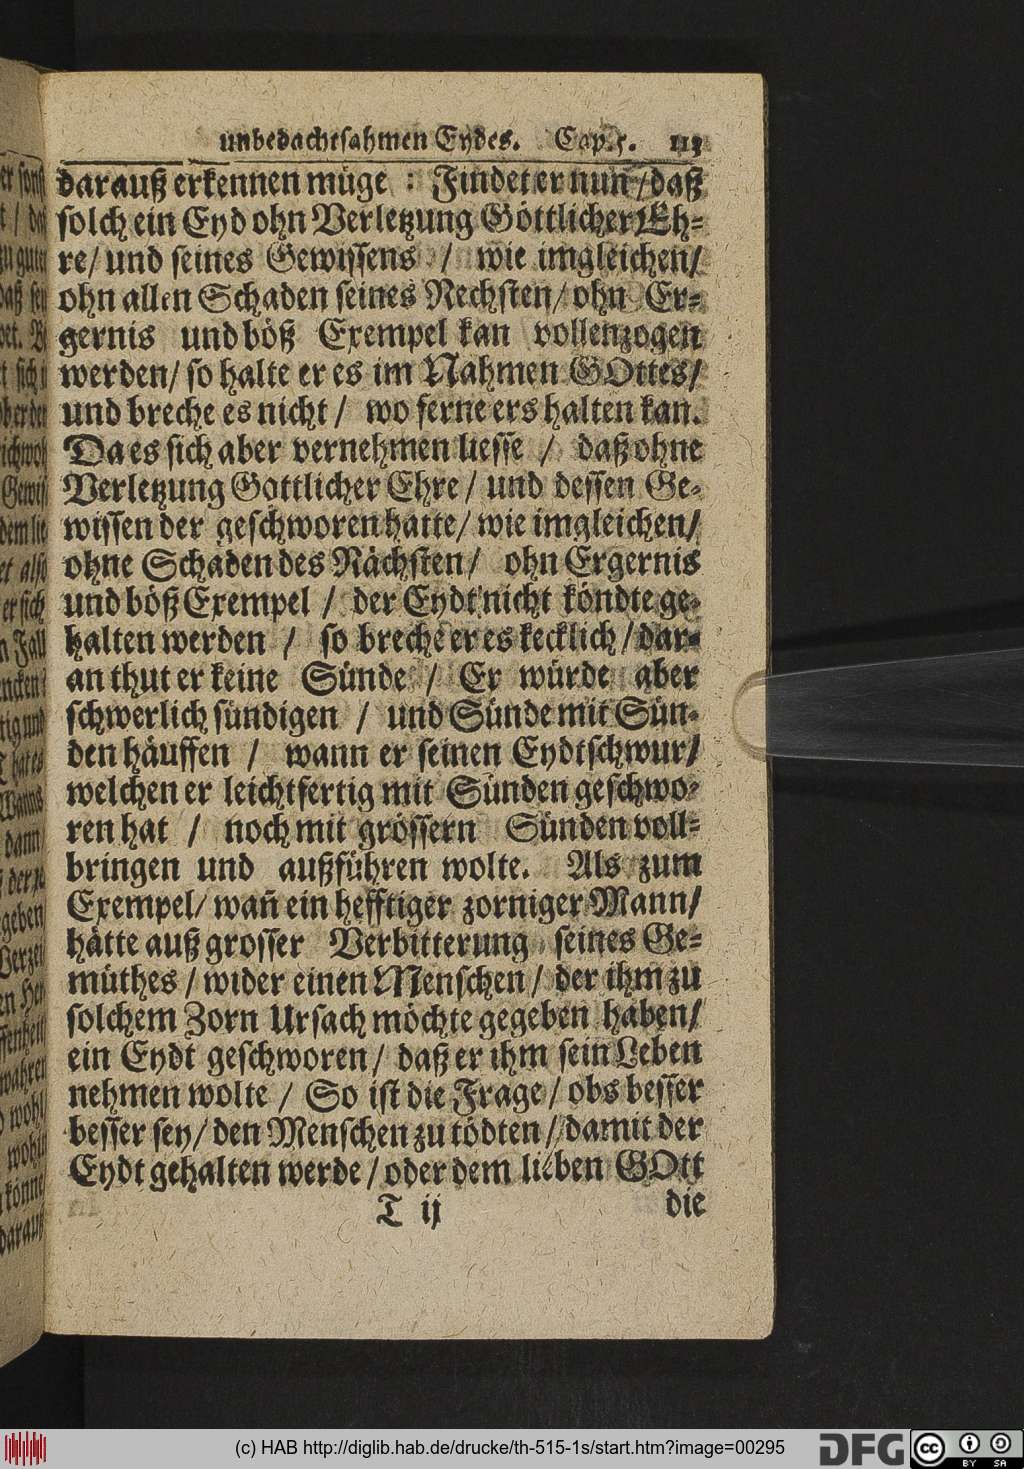 unbedachtsahmen Eydes. Cap. 5. 113
darauß erkennen müge : Findet er nun / daß
solch ein Eyd ohn Verletzung Göttlicher Eh-
re/ und seines Gewissens / wie imgleichen/
ohn allen Schaden seines Nechsten/ ohn Er-
gernis und böß Exempel kan vollenzogen
werden/ so halte er es im Nahmen GOttes/
und breche es nicht / wo ferne ers halten kan.
Da es sich aber vernehmen liesse / daß ohne
Verletzung Gottlicher Ehre / und dessen Ge-
wissen der geschworen hatte/ wie imgleichen/
ohne Schaden des Nächsten / ohn Ergernis
und böß Exempel / der Eydt nicht köndte ge-
halten werden / so breche er es kecklich / dar-
an thut er keine Sünde / Er würde aber
schwerlich sündigen / und Sünde mit Sün-
den häuffen / wann er seinen Eydtschwur/
welchen er leichtfertig mit Sünden geschwo-
ren hat / noch mit grössern Sünden voll-
bringen und außführen wolte. Als zum
Exempel/ wañ ein hefftiger zorniger Mann/
hätte auß grosser Verbitterung seines Ge-
müthes / wider einen Menschen / der ihm zu
solchem Zorn Ursach möchte gegeben haben/
ein Eydt geschworen / daß er ihm sein Leben
nehmen wolte / So ist die Frage / obs besser
besser sey / den Menschen zu tödten / damit der
Eydt gehalten werde / oder dem lieben GOtt
T ij die
(c) HAB http://diglib.hab.de/drucke/th-515-1s/start.htm?image=00295
DFG cc BY SA